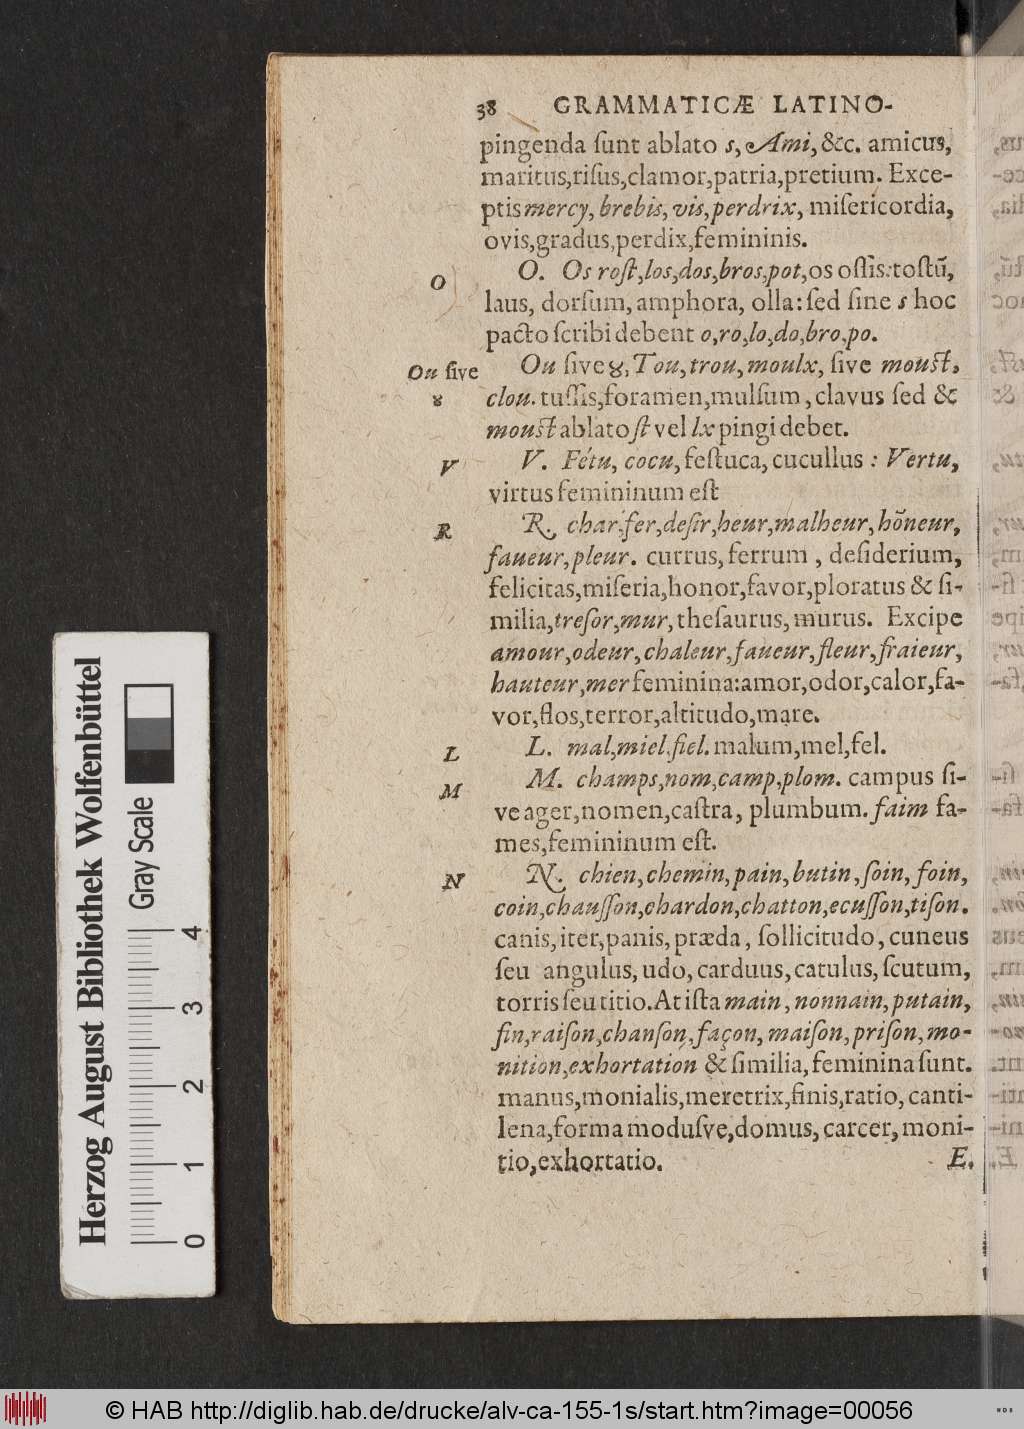 38 GRAMMATICÆ LATINO-
pingenda ſunt ablato s, Ami, &c. amicus,
maritus,riſus,clamor,patria,pretium. Exce-
ptis mercy, brebis, vis, perdrix, miſericordia,
ovis,gradus,perdix,femininis.
O
O. Os roſt,los,dos,bros,pot,os oſſis:toſtū,
laus, dorſum, amphora, olla: ſed ſine s hoc
pacto ſcribi debent o,ro,lo,do,bro,po.
Ou ſive
ȣ
Ou ſive ȣ, Tou, trou, moulx, ſive mouſt,
clou. tuſſis,foramen,mulſum, clavus ſed &
mouſt ablato ſt vel lx pingi debet.
V
V. Fétu, cocu, feſtuca, cucullus : Vertu,
virtus femininum eſt
R
R. char,fer,deſir,heur,malheur,hōneur,
faueur,pleur. currus, ferrum , deſiderium,
felicitas,miſeria,honor,favor,ploratus & ſi-
milia,treſor,mur, theſaurus, murus. Excipe
amour,odeur,chaleur,faueur,fleur,fraieur,
hauteur,mer feminina:amor,odor,calor,fa-
vor,flos,terror,altitudo,mare.
L
L. mal,miel,fiel. malum,mel,fel.
M
M. champs,nom,camp,plom. campus ſi-
ve ager,nomen,caſtra, plumbum. faim fa-
mes,femininum eſt.
N
N. chien,chemin,pain,butin,ſoin,foin,
coin,chauſſon,chardon,chatton,ecuſſon,tiſon.
canis,iter,panis, præda, ſollicitudo, cuneus
ſeu angulus, udo, carduus, catulus, ſcutum,
torris ſeu titio. At iſta main, nonnain, putain,
fin,raiſon,chanſon,façon, maiſon, priſon, mo-
nition,exhortation & ſimilia, feminina ſunt.
manus,monialis,meretrix,finis,ratio, canti-
lena,forma moduſve,domus, carcer, moni-
tio,exhortatio. E.
Herzog August Bibliothek Wolfenbüttel
Gray Scale
0 1 2 3 4
© HAB http://diglib.hab.de/drucke/alv-ca-155-1s/start.htm?image=00056